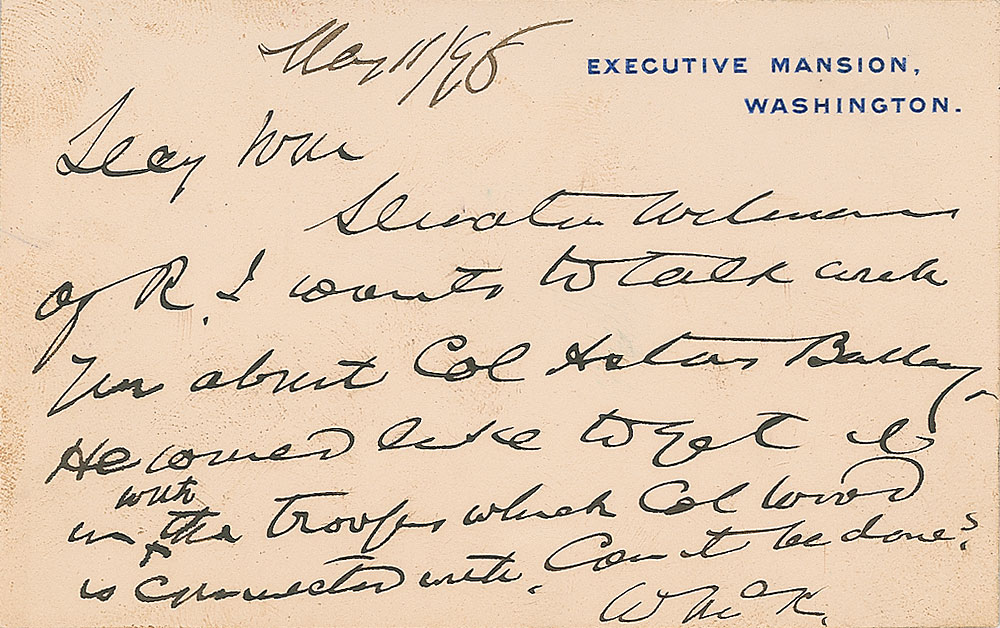 May 11/98
EXECUTIVE MANSION,
WASHINGTON.
Secy War
Senator Wetmore
of R. I wants to talk with
you about Col Astors Battery.
He would like to get it
with
in the troops which Col Wood
is connected with. Can it be done?
W McK.